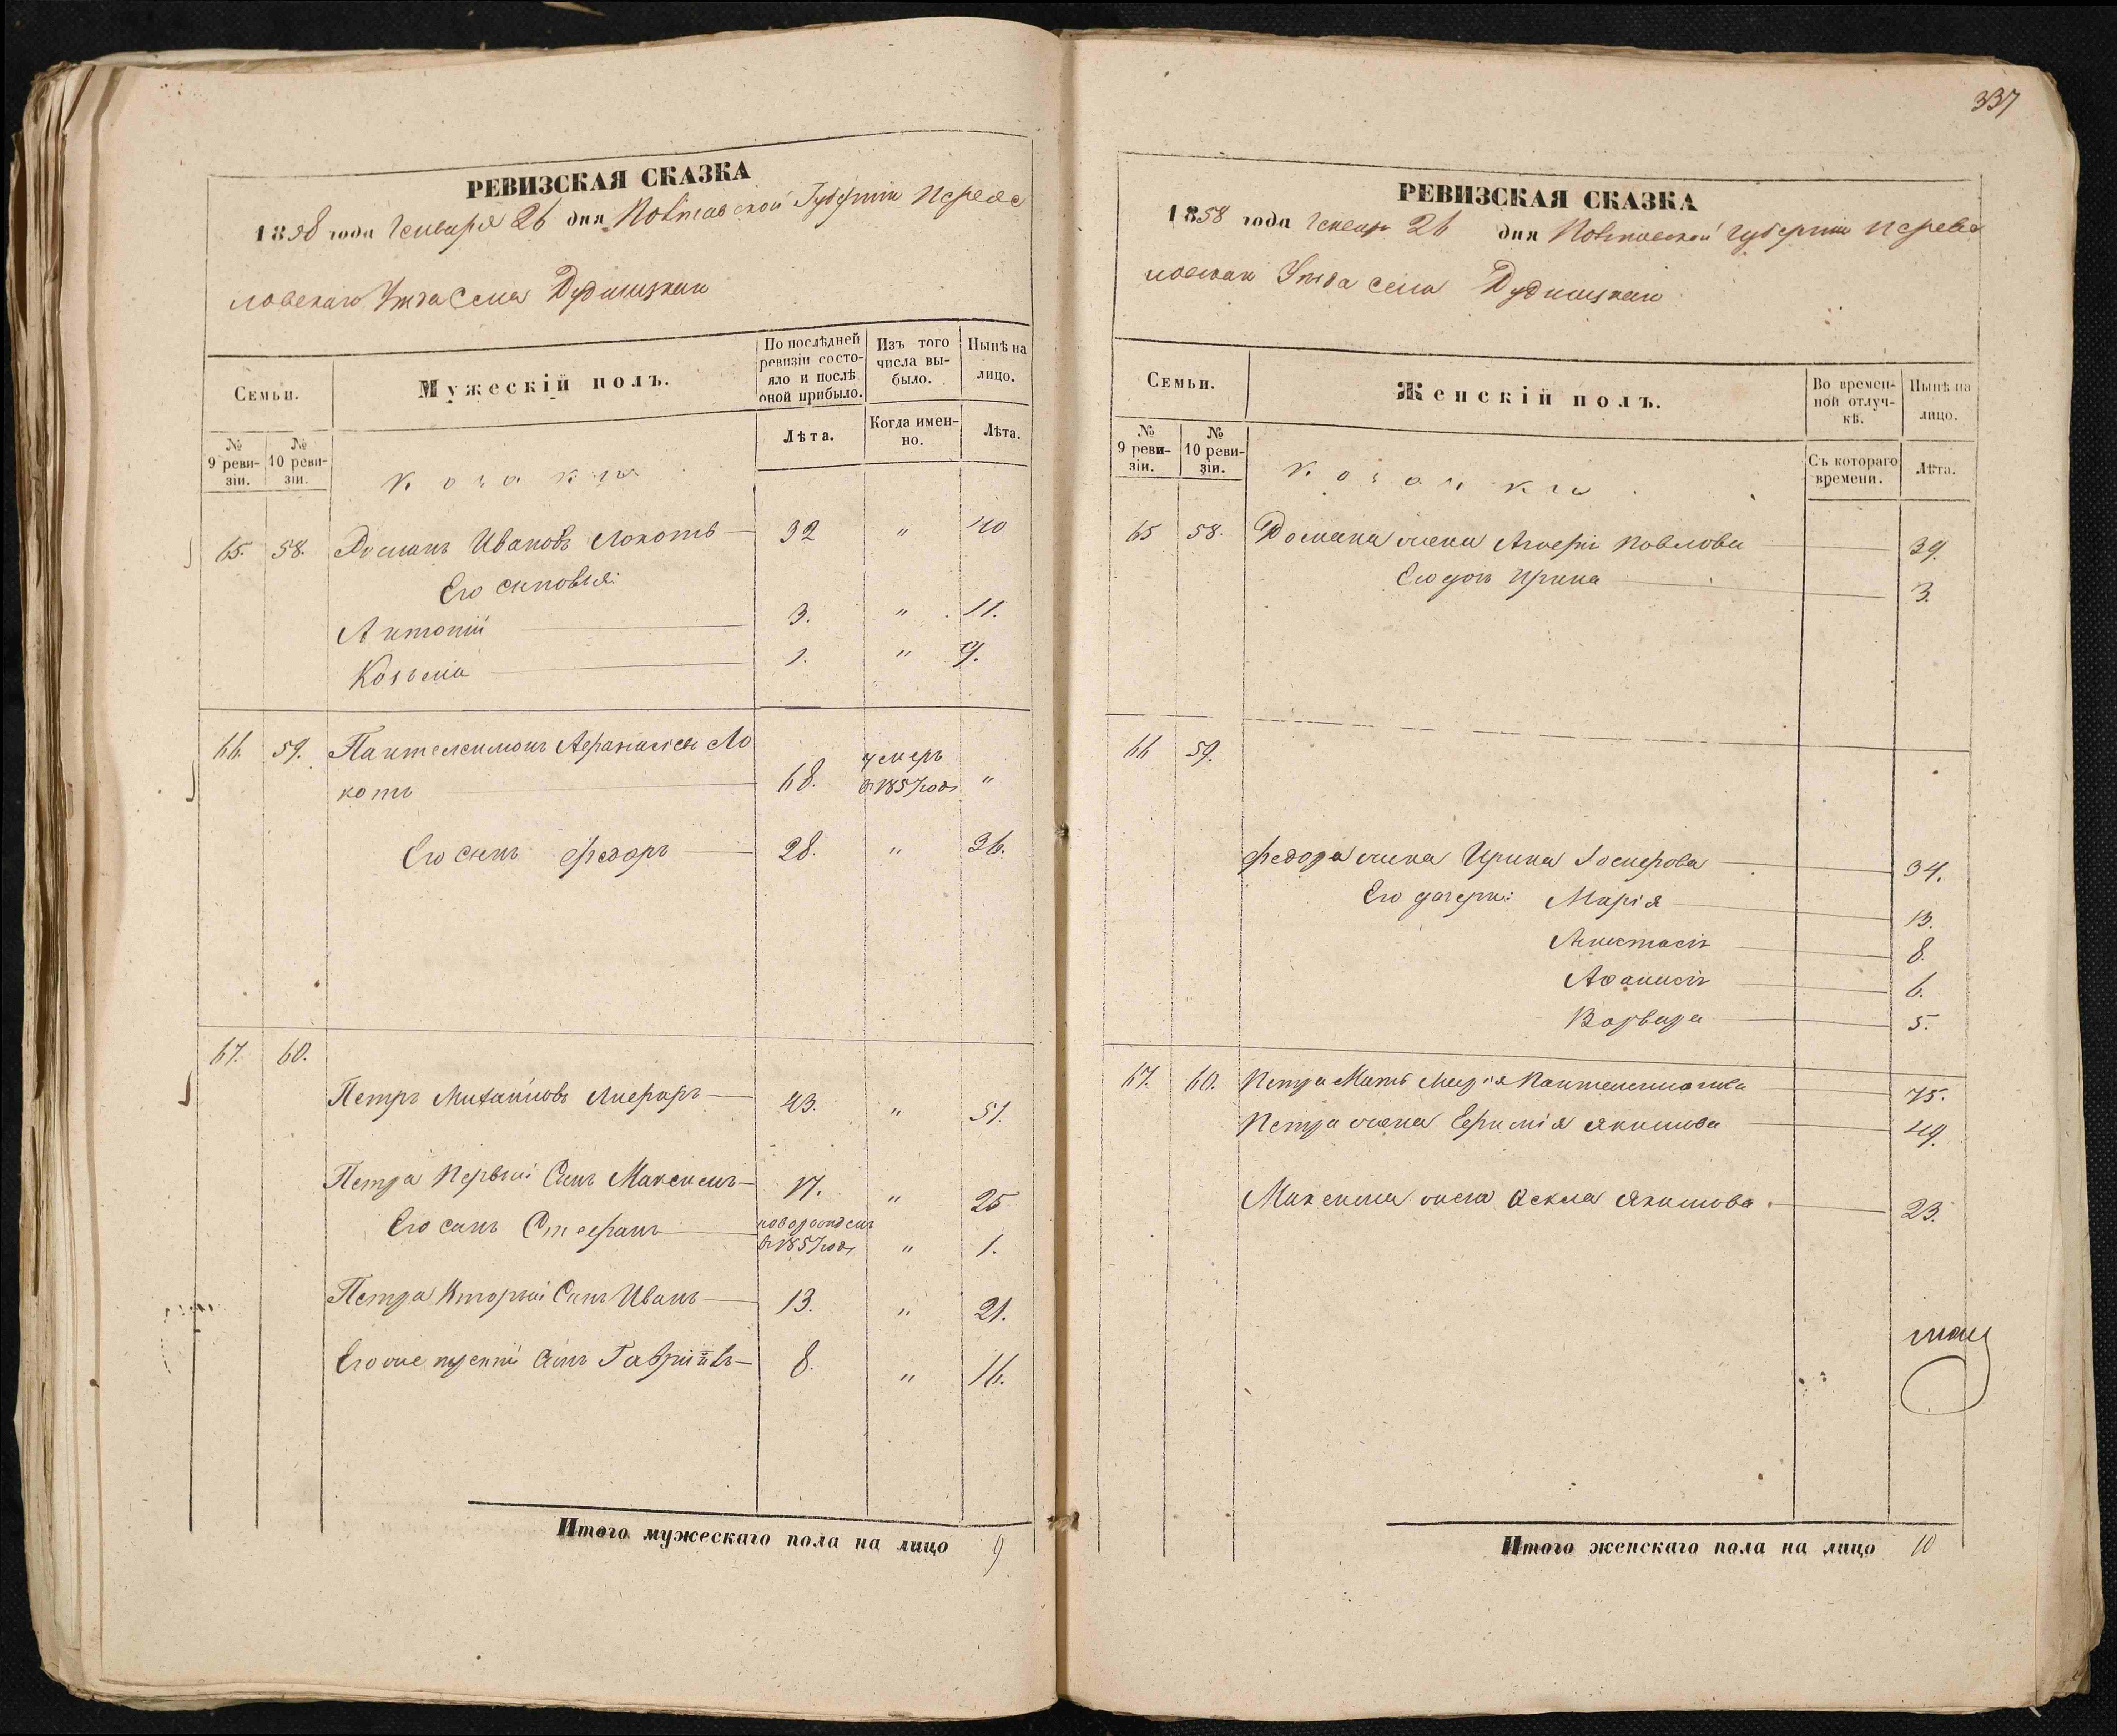 РЕВИЗСКАЯ СКАЗКА
1858 года Генваря 26 дня Полтавской Губерніи Переяс
ловскаго Уезда Села
Семьи.
Мужескій полъ.
По послѣдней ревизіи состо-
яло и послѣ оной прибыло.
Изъ того числа вы-
было.
Нынѣ на лицо.
№ 9 реви-
зіи.
№ 10 реви-
зіи.
Лѣта.
Когда имен-
но.
Лѣта.
Козаки
65. 58. Романъ Ивановъ Локоть 32 " 40
Его сыновья:
Антоній 3. " 11.
Козьма 1. " 9.
66. 59. Пантелеимонъ Афанасіевъ Ло
коть 68. умеръ в 1857 годе "
Его сынъ Федоръ 28. " 36.
67. 60.
Петръ Михайловъ 43. " 51.
Петра Первый Сынъ Максимъ 17. " 25
Его сынъ Стефанъ новорожденъ в 1857 годе " 1.
Петра Вторый Сынъ Иванъ 13. " 21.
Сынъ Гавріилъ 8. " 16.
Итого мужескаго пола на лицо 9
337
РЕВИЗСКАЯ СКАЗКА
1858 года Генвар 26 дня Полтавской Губерніи Перея
ловскаго Уезда села
Семьи.
Женскій полъ.
Во времен-
ной отлуч-
кѣ.
Нынѣ на лицо.
№ 9 реви-
зіи.
№ 10 реви-
зіи.
Съ котораго времени.
Лѣта.
Козачки
65 58. Романа жена Павлова 39.
Его дочь Ирина 3.
66 59.
Федора жена Ирина 34.
Его дочери: Марія 13.
Анастасія 8.
Афанасія 6.
Варвара 5.
67. 60. Петра Мать Марія Пантелеимонова 75.
Петра жена Евфимія Якимова 49.
Максима жена Фекла Якимова 23.
Итого женскаго пола на лицо 10